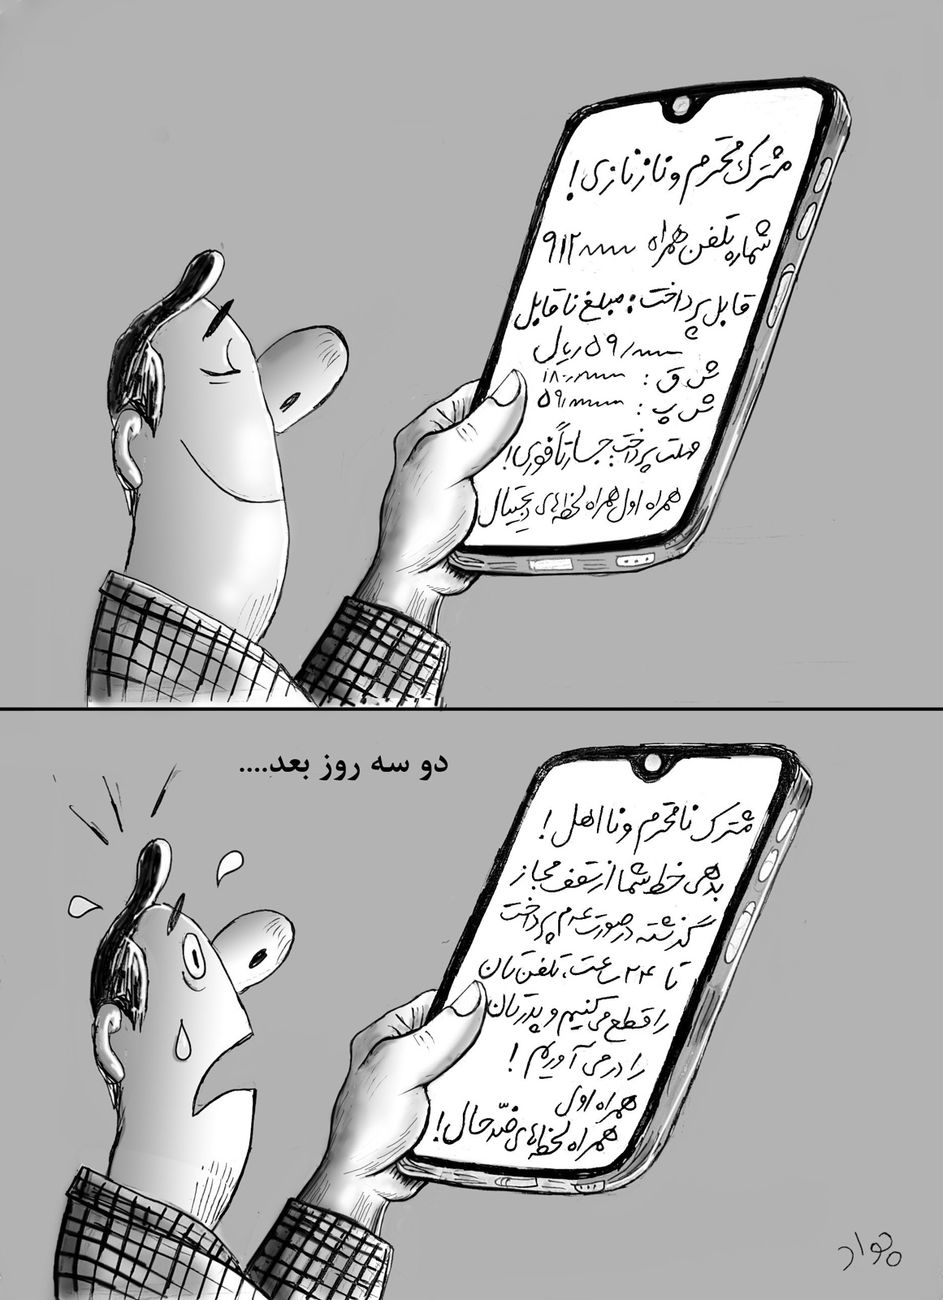 مشترک محترم و نازنازی!
شماره تلفن همراه ۹۱۲
قابل پرداخت: مبلغ ناقابل
۵۹/ ریال
ش ق: ۱۸۰/
ش پ: ۵۹/
مهلت پرداخت: جسارتاً فوری!
همراه اول همراه لحظه‌های دیجیتال
دو سه روز بعد....
مشترک نامحترم و نااهل!
بدهی خط شما از سقف مجاز
گذشته در صورت عدم پرداخت
تا ۲۴ ساعت، تلفن‌تان
را قطع می‌کنیم و پدرتان
را در می‌آوریم!
همراه اول
همراه لحظه‌های ضدّ حال!
جواد